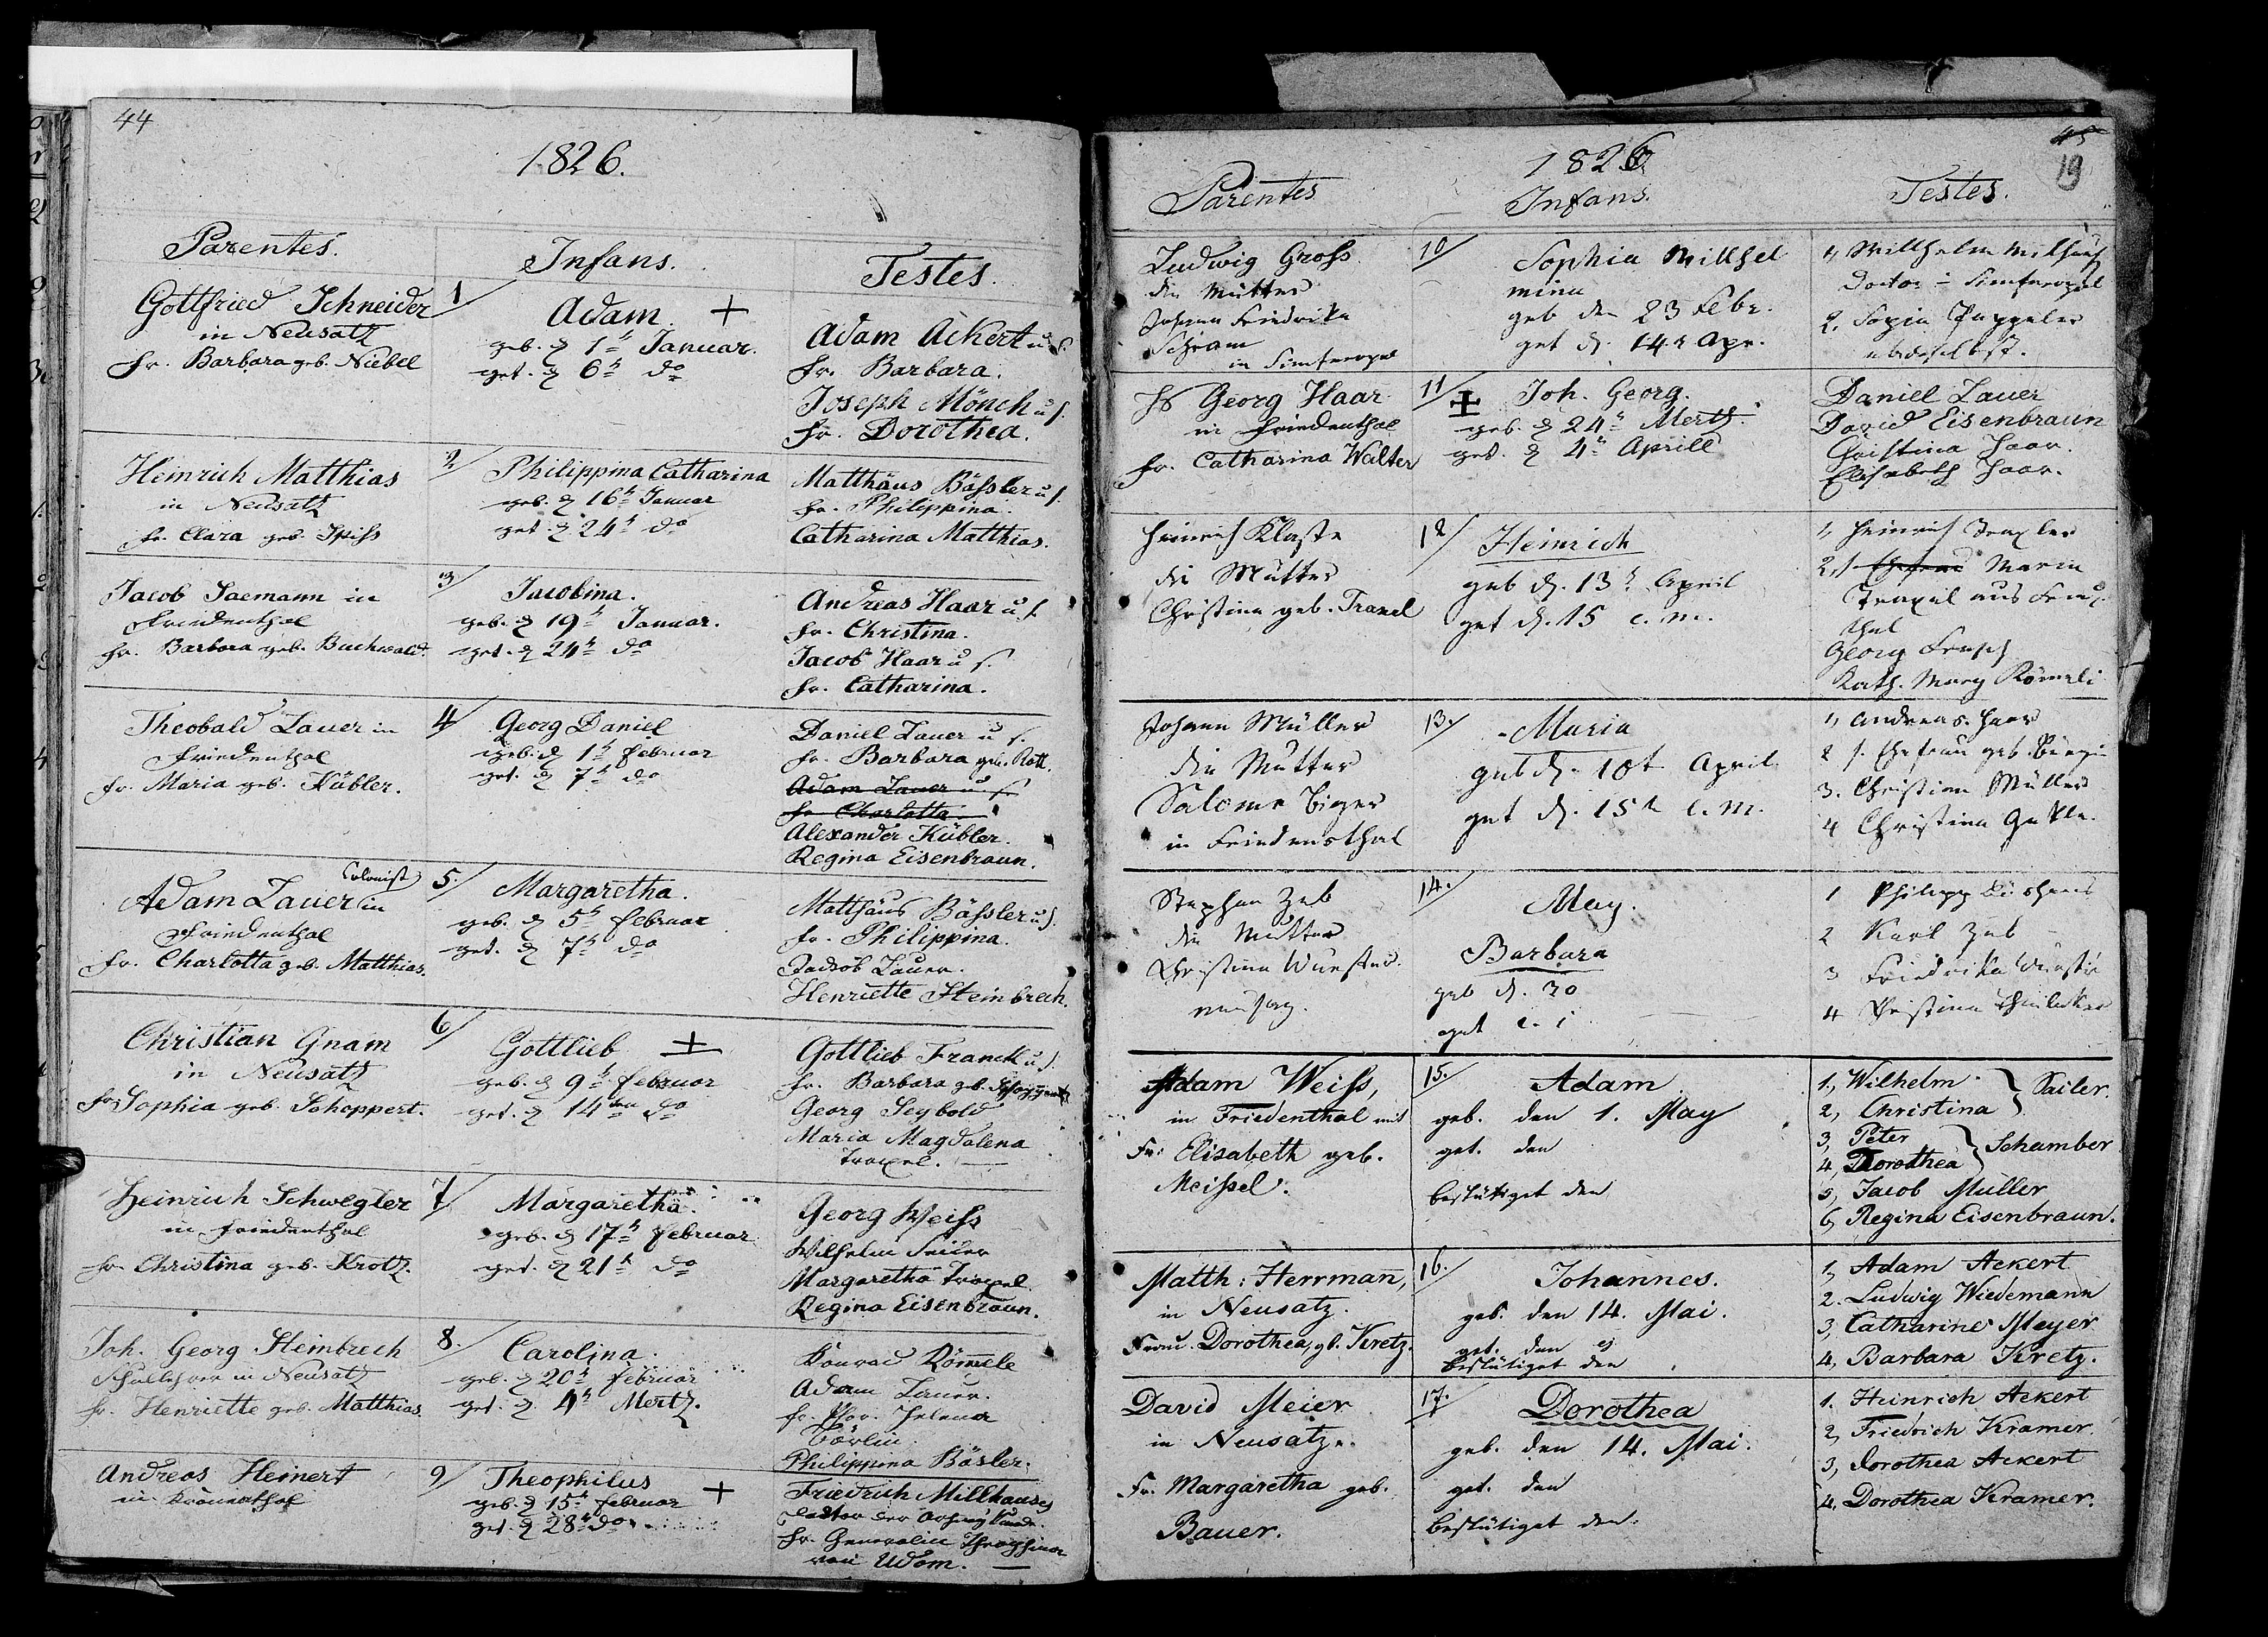 44
1826.
Parentes. Infans. Testes.
Gottfried Schneider
in Neusatz
Fr. Barbara geb. Niebel
1/ Adam +
geb. d 1t Januar.
get. d 6t do
Adam Ackert u s.
Fr. Barbara.
Joseph Mönch u s.
Fr. Dorothea.
Heinrich Matthias
in Neusatz
Fr. Clara geb. Spiss
2/ Philippina Catharina
geb. d 16t Januar
get. d 24t do
Matthäus Bässler u s.
Fr. Philippina.
Catharina Matthias.
Jacob Saemann in
Friedenthal
Fr. Barbara geb. Buchwald.
3/ Jacobina.
geb. d 19t Januar.
get. d 24t do
Andreas Haar u s.
Fr. Christina.
Jacob Haar u s.
Fr. Catharina.
Theobald Lauer in
Friedenthal
Fr. Maria geb. Kübler.
4/ Georg Daniel
geb. d 1t Februar
get. d 7t do
Daniel Lauer u s.
Fr. Barbara geb. Rott.
Adam Lauer u s.
Fr. Charlotta.
Alexander Kübler.
Regina Eisenbraun.
Colonist
Adam Lauer in
Friedenthal
Fr. Charlotta geb. Matthias.
5/ Margaretha.
geb. d 5t Februar
get. d 7t do
Matthäus Bässler u s.
Fr. Philippina.
Jacob Lauer.
Henriette Heinbrech.
Christian Gnam
in Neusatz
Fr. Sophia geb. Schoppert.
6/ Gottlieb +
geb. d 9t Februar
get. d 14ten do
Gottlieb Franck u s.
Fr. Barbara geb.
Georg Seybold
Maria Magdalena
Traxel.
Heinrich Schwegler
in Friedenthal
Fr. Christina geb. Krotz.
7/ Margaretha.
geb. d 17t Februar
get. d 21t do
Georg Weiss
Wilhelm Seiler
Margaretha Traxel
Regina Eisenbraun.
Joh. Georg Heinbrech
Schullehrer in Neusatz
Fr. Henriette geb. Matthias.
8/ Carolina.
geb. d 20t Februar
get. d 4t Mertz.
Konrad Römmele
Adam Lauer.
Fr. Helena
Philippina Bäsler.
Andreas Heinert
in Kronenthal
9/ Theophilus +
geb. d 15t Februar
get. d 28t do
Friedrich Millhauses
Doctor der
Fr. Generalin
von Udom.
45
19
1826
Parentes Infans. Testes.
Ludwig Gross
die Mutter
Johann Friedrika
Schram
in Simferopol
10/ Sophia Willhel
mina
geb den 23 Febr.
get d. 14t Apr.
1, Willhelm Milhaus
Doctor - Simferopol
2, Sopia Pappeler
ebdaselbst.
Georg Haar
in Friedenthal
Fr. Catharina Walter
11/ + Joh. Georg.
geb. d 24t Mertz
get. d 4t Aprill
Daniel Lauer
David Eisenbraun
Christina Haar.
Elisabeth Haar.
Heinrich Klaste
die Mutter
Christina geb. Traxel
12/ Heinrich
geb d. 13t April
get d. 15 c. m.
1, Heinrich Traxler
2, s Ehefrau Maria
Traxel aus
thal
Georg
Kath. Marg
Johann Müller
die Mutter
Salome
in Friedensthal
13/ Maria
geb d. 10t April
get d. 15t c. m.
1, Andreas Haar
2 s. Ehefrau geb.
3. Christian Müller
4 Christina
Stephan Zeb
die Mutter
Christina Wurster.
14/ May.
Barbara
geb d. 30
get c. i
1 Philipp
2 Karl Zeb
3 Friedrika Wurster
4 Christina
Adam Weiss,
in Friedenthal mit
Fr. Elisabeth geb.
Meissel.
15/ Adam
geb. den 1. May
get. den
bestätiget den
1, Wilhelm } Sailer.
2, Christina
3, Peter } Schamber
4, Dorothea
5, Jacob Müller
6, Regina Eisenbraun.
Matth: Herrman,
in Neusatz.
Frau Dorothea, gb. Kretz.
16. Johannes.
geb. den 14. Mai.
get. den
bestätiget den
1, Adam Ackert
2. Ludwig Wiedemann
3, Catharine Meyer
4, Barbara Kretz.
David Meier
in Neusatz.
Fr. Margaretha geb.
Bauer.
17. Dorothea
geb. den 14. Mai.
get. den
bestätiget den
1. Heinrich Ackert
2, Friedrich Kramer.
3, Dorothea Ackert
4, Dorothea Kramer.